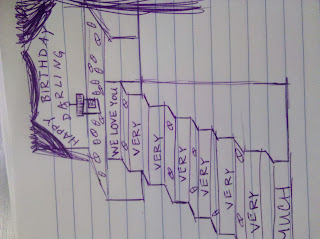 HAPPY BIRTHDAY
DARLING
WE LOVE YOU
VERY
VERY
VERY
VERY
VERY
VERY
MUCH